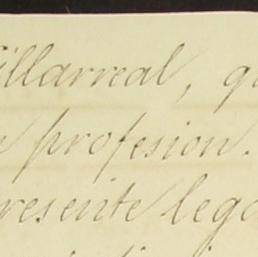 illarreal, q
profesion.
resente lega